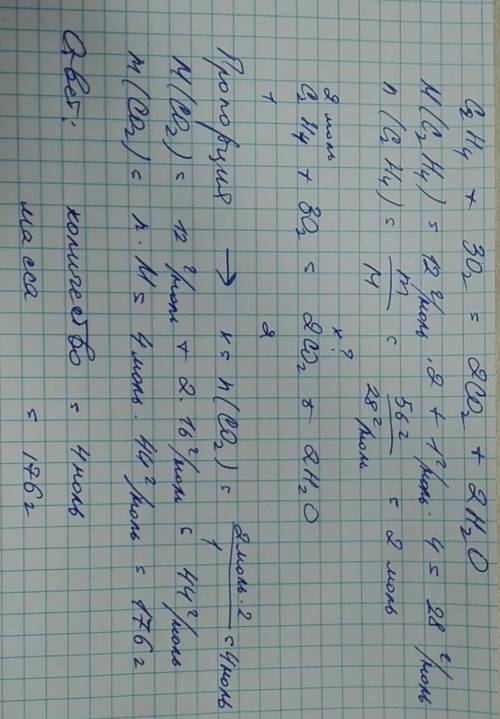 C₂H₄ + 3O₂ = 2CO₂ + 2H₂O
M(C₂H₄) = 12 г/моль · 2 + 1 г/моль · 4 = 28 г/моль
n(C₂H₄) = m/M = 56 г/28 г/моль = 2 моль
2 моль x?
C₂H₄ + 3O₂ = 2CO₂ + 2H₂O
1 2
Пропорция → x = n(CO₂) = 2 моль · 2/1 = 4 моль
M(CO₂) = 12 г/моль + 2 · 16 г/моль = 44 г/моль
m(CO₂) = n · M = 4 моль · 44 г/моль = 176 г
Ответ: количество = 4 моль
масса = 176 г